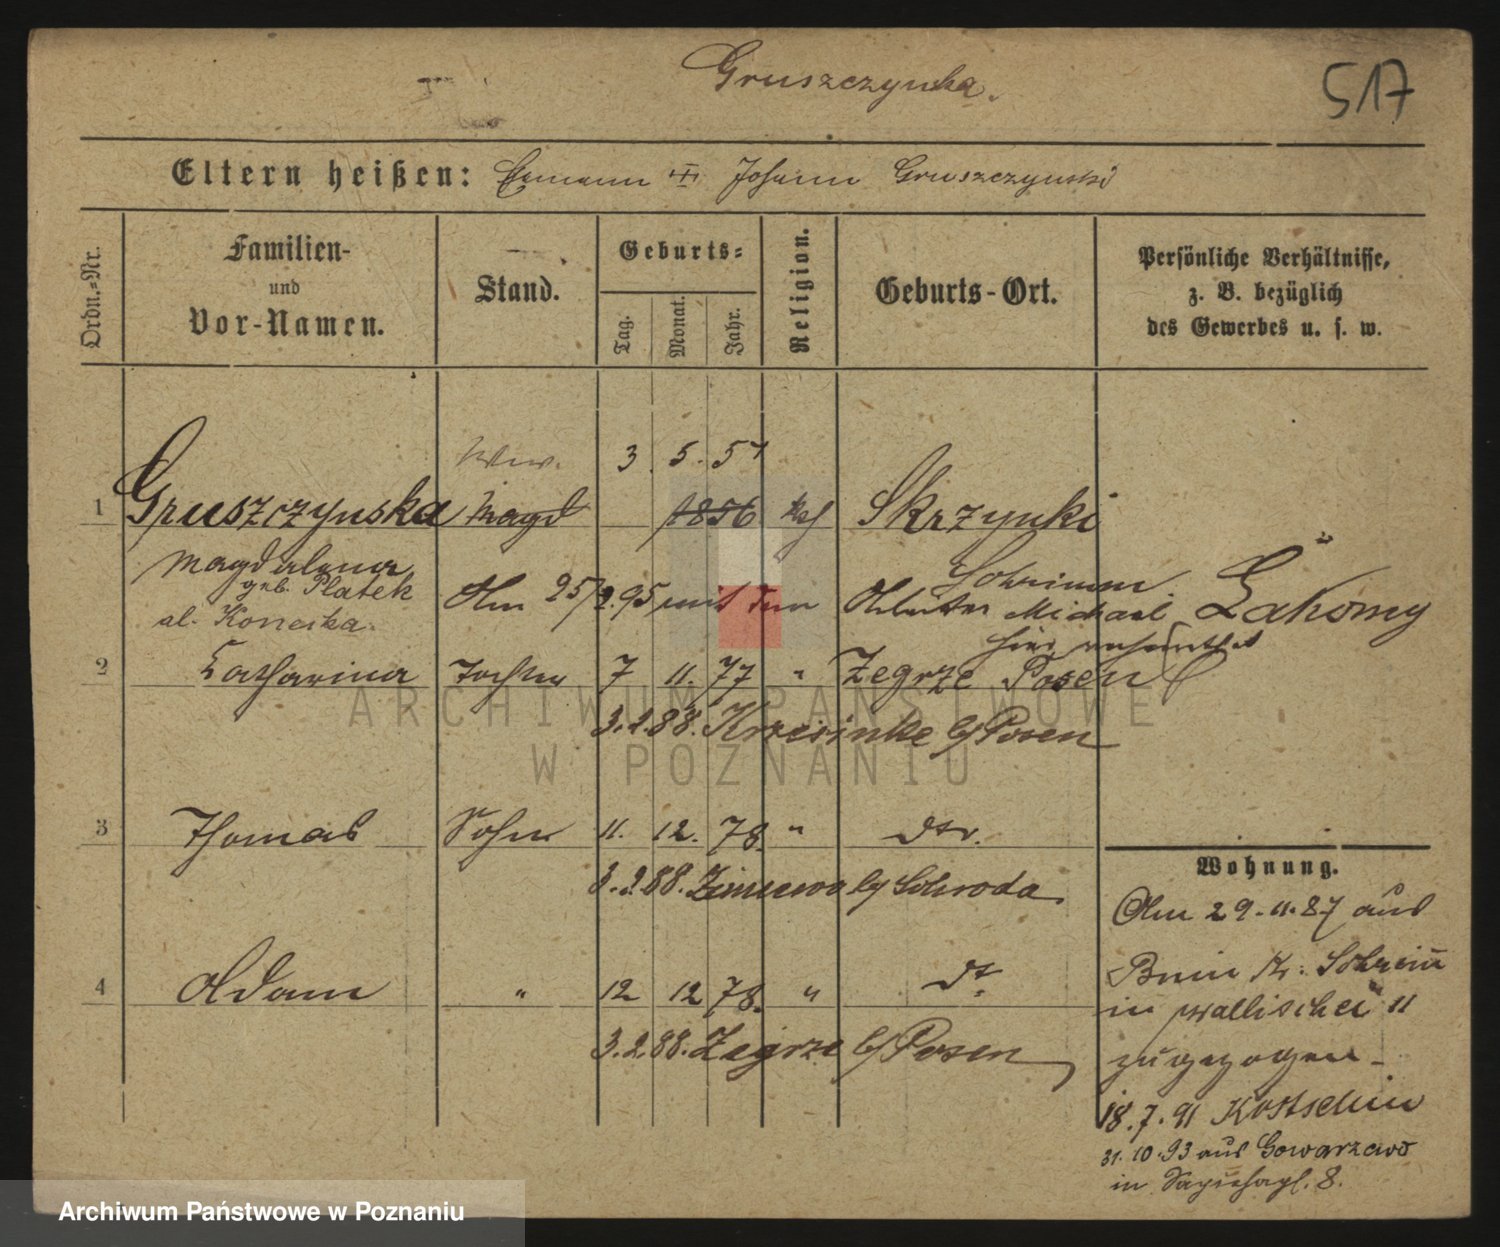 Gruszczynska.
517
Eltern heißen: Ehemann III Johann Gruszczynski
Ordn.-Nr.
Familien-
und
Vor-Namen.
Stand.
Geburts-
Tag.
Monat.
Jahr.
Religion.
Geburts-Ort.
Persönliche Verhältnisse,
z. B. bezüglich
des Gewerbes u. s. w.
Www. 3. 5. 57
1 Gruszczynska Magd 1856 kth Skrzynki
Magdalena Schrimm
geb. Platek
al. Konecka.
Am 25/2.95 mit dem Arbeiter Michael Łakomy
hier verheirathet
2 Catharina Tochter 7 11. 77 " Zegrze Posen
3.2.88. Krzesinke b/Posen
3 Thomas Sohn 11. 12. 78. " dto.
3.2.88. Zimiewo b/ Schroda
4 Adam " 12 12 78. " dt.
3.2.88. Zegrze b/Posen
Wohnung.
Am 29.11.87 aus
Bnin Kr. Schrim̄
in Wallischei 11
zugezogen -
18.7.91 Kostschin
31.10.93 aus Gowarzewo
in Sapiehapl. 8.
ARCHIWUM PAŃSTWOWE
W POZNANIU
Archiwum Państwowe w Poznaniu